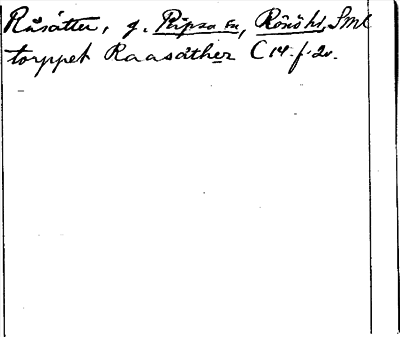 Råsätter, g. Räpsa sn, Rönö hd, Sml
torppet Raasäther C 14 f. 2v.